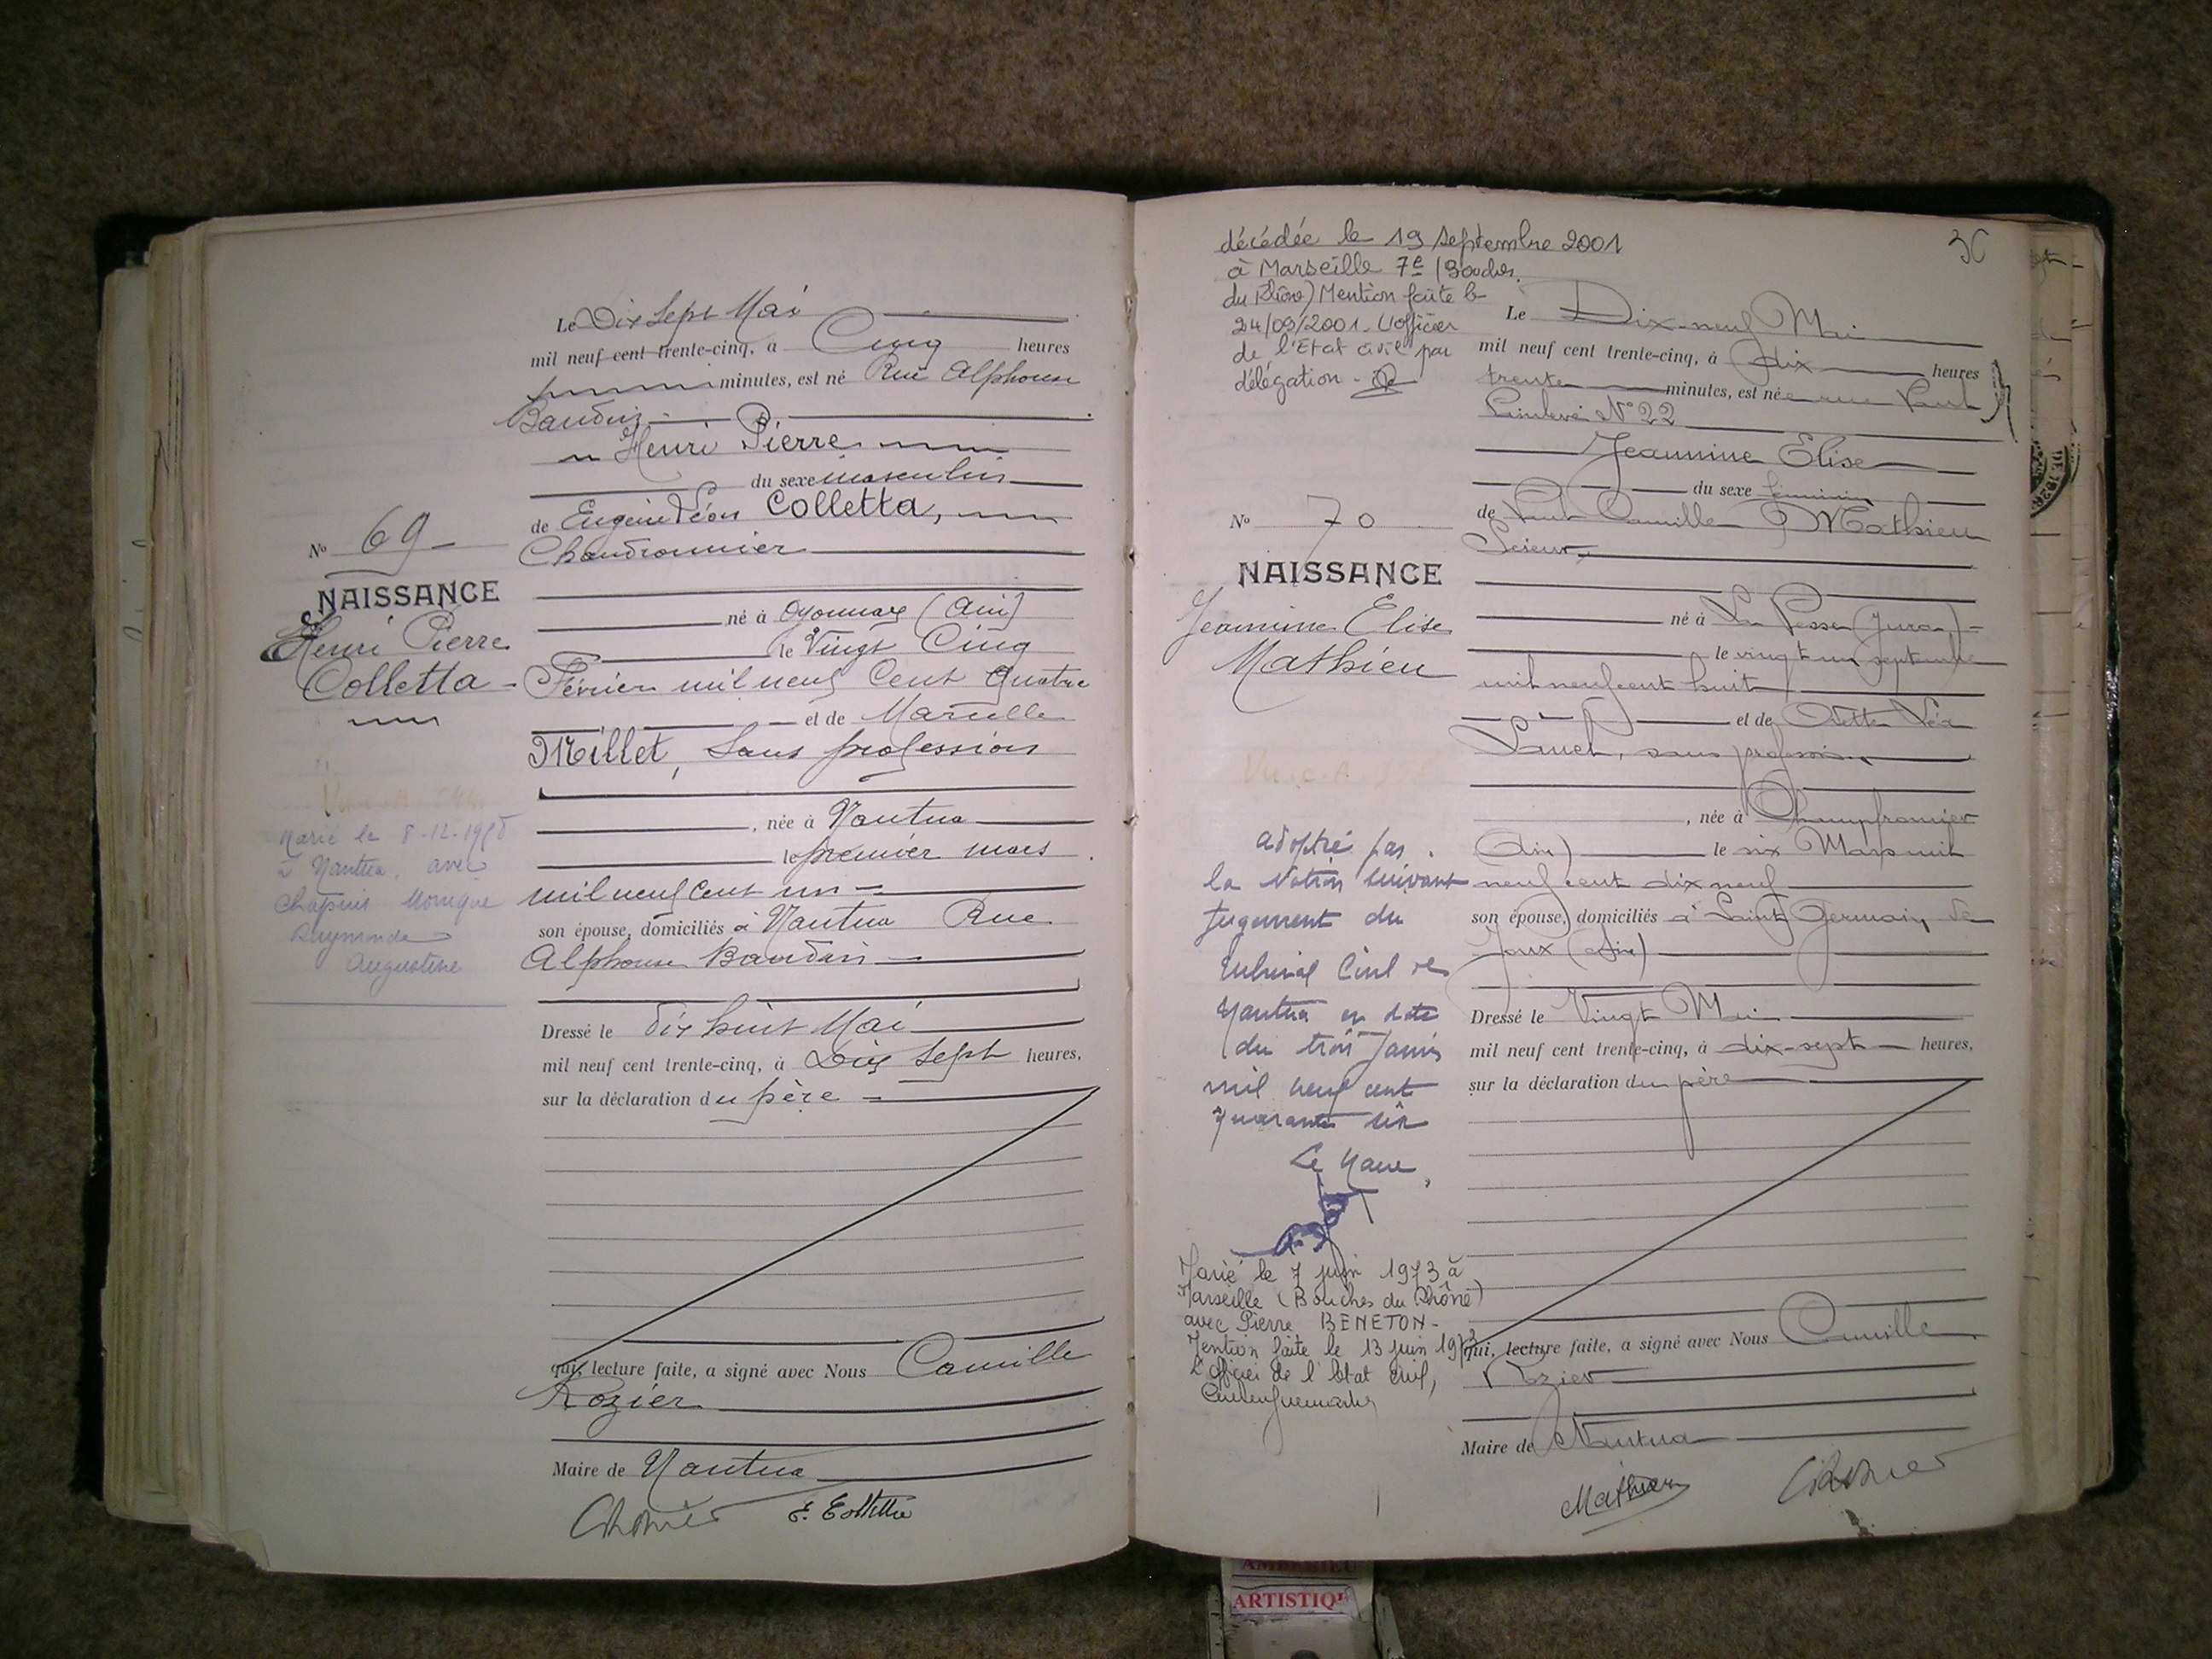 Le Dix Sept Mai
mil neuf cent trente-cinq, à Cinq heures
minutes, est né Rue Alphonse
Baudin
Henri Pierre
du sexe masculin
de Eugène Léon Colletta,
Chaudronnier
né à Oyonnax (Ain)
le Vingt Cinq
Février mil neuf Cent Quatre
et de Marcelle
Millet, Sans profession
, née à Nantua
le premier mars
mil neuf cent un
son épouse, domiciliés à Nantua Rue
Alphonse Baudin
Dressé le dix huit Mai
mil neuf cent trente-cinq, à Dix Sept heures,
sur la déclaration du père
qui, lecture faite, a signé avec Nous Camille
Rozier
Maire de Nantua
E. Colletta
No 69
NAISSANCE
Henri Pierre
Colletta
Marié le 8-12-
à Nantua, avec
Chapuis Monique
Raymonde
Augustine
décédée le 19 septembre 2001
à Marseille 7e (Bouches
du Rhône) Mention faite le
24/09/2001. L'officier
de l'Etat civil par
délégation
36
Le Dix-neuf Mai
mil neuf cent trente-cinq, à dix heures
trente minutes, est née rue Paul
Painlevé N°22
Jeannine Elise
du sexe féminin
de Paul Camille Mathieu
Scieur,
né à La Pesse (Jura)
le vingt un septembre
mil neuf cent huit
et de Odette Léa
sans profession
, née à Champfromier
(Ain) le six Mars mil
neuf cent dix neuf
son épouse, domiciliés à Saint Germain de
Joux (Ain)
Dressé le Vingt Mai
mil neuf cent trente-cinq, à dix-sept heures,
sur la déclaration du père
qui, lecture faite, a signé avec Nous Camille
Rozier
Maire de Nantua
Mathieu
No 70
NAISSANCE
Jeannine Elise
Mathieu
adopté par
la Nation suivant
jugement du
Tribunal Civil de
Nantua en date
du trois Janvier
mil neuf cent
quarante six
Le Maire,
Marié le 7 juin 1973 à
Marseille (Bouches du Rhône)
avec Pierre BENETON-
Mention faite le 13 juin 1973
L'officier de l'Etat Civil,
ARTISTIQ